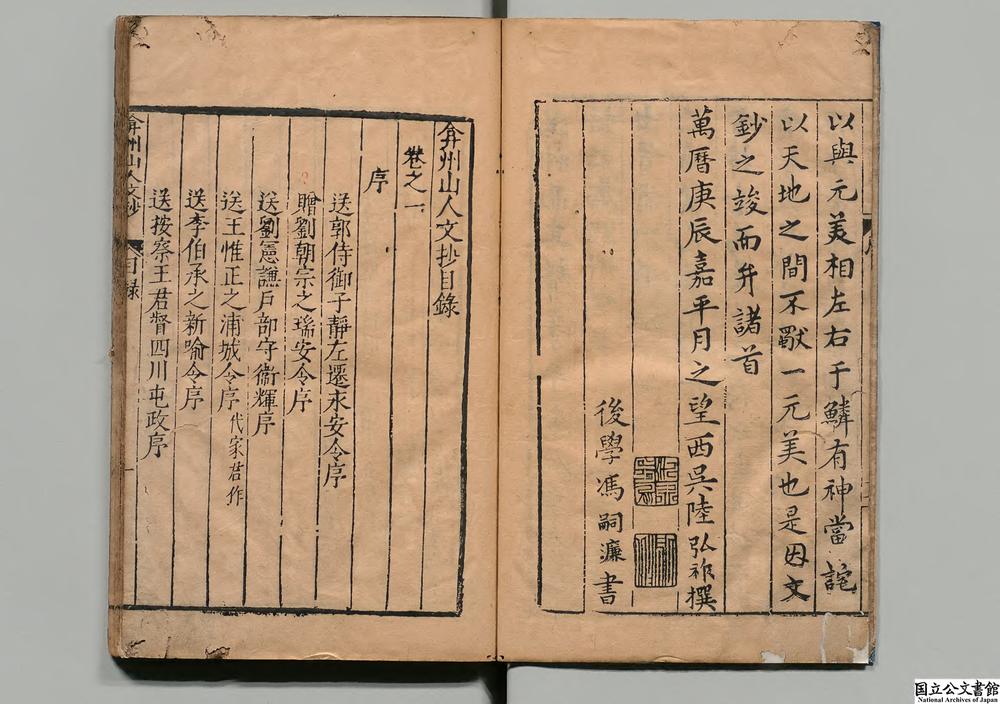 以與元美相左右于鱗有神當詫
以天地之間不獸一元美也是因文
鈔之竣而弁諸首
萬曆庚辰嘉平月之望西吳陸弘祚撰
後學馮嗣濂書
弇州山人文抄目錄
卷之一
序
送郭侍御子靜左遷永安令序
贈劉朝宗之瑞安令序
送劉憲謙戶部守衛輝序
送王惟正之浦城令序 代家君作
送李伯承之新喻令序
送按察王君督四川屯政序
弇州山人文抄 目錄
国立公文書館
National Archives of Japan